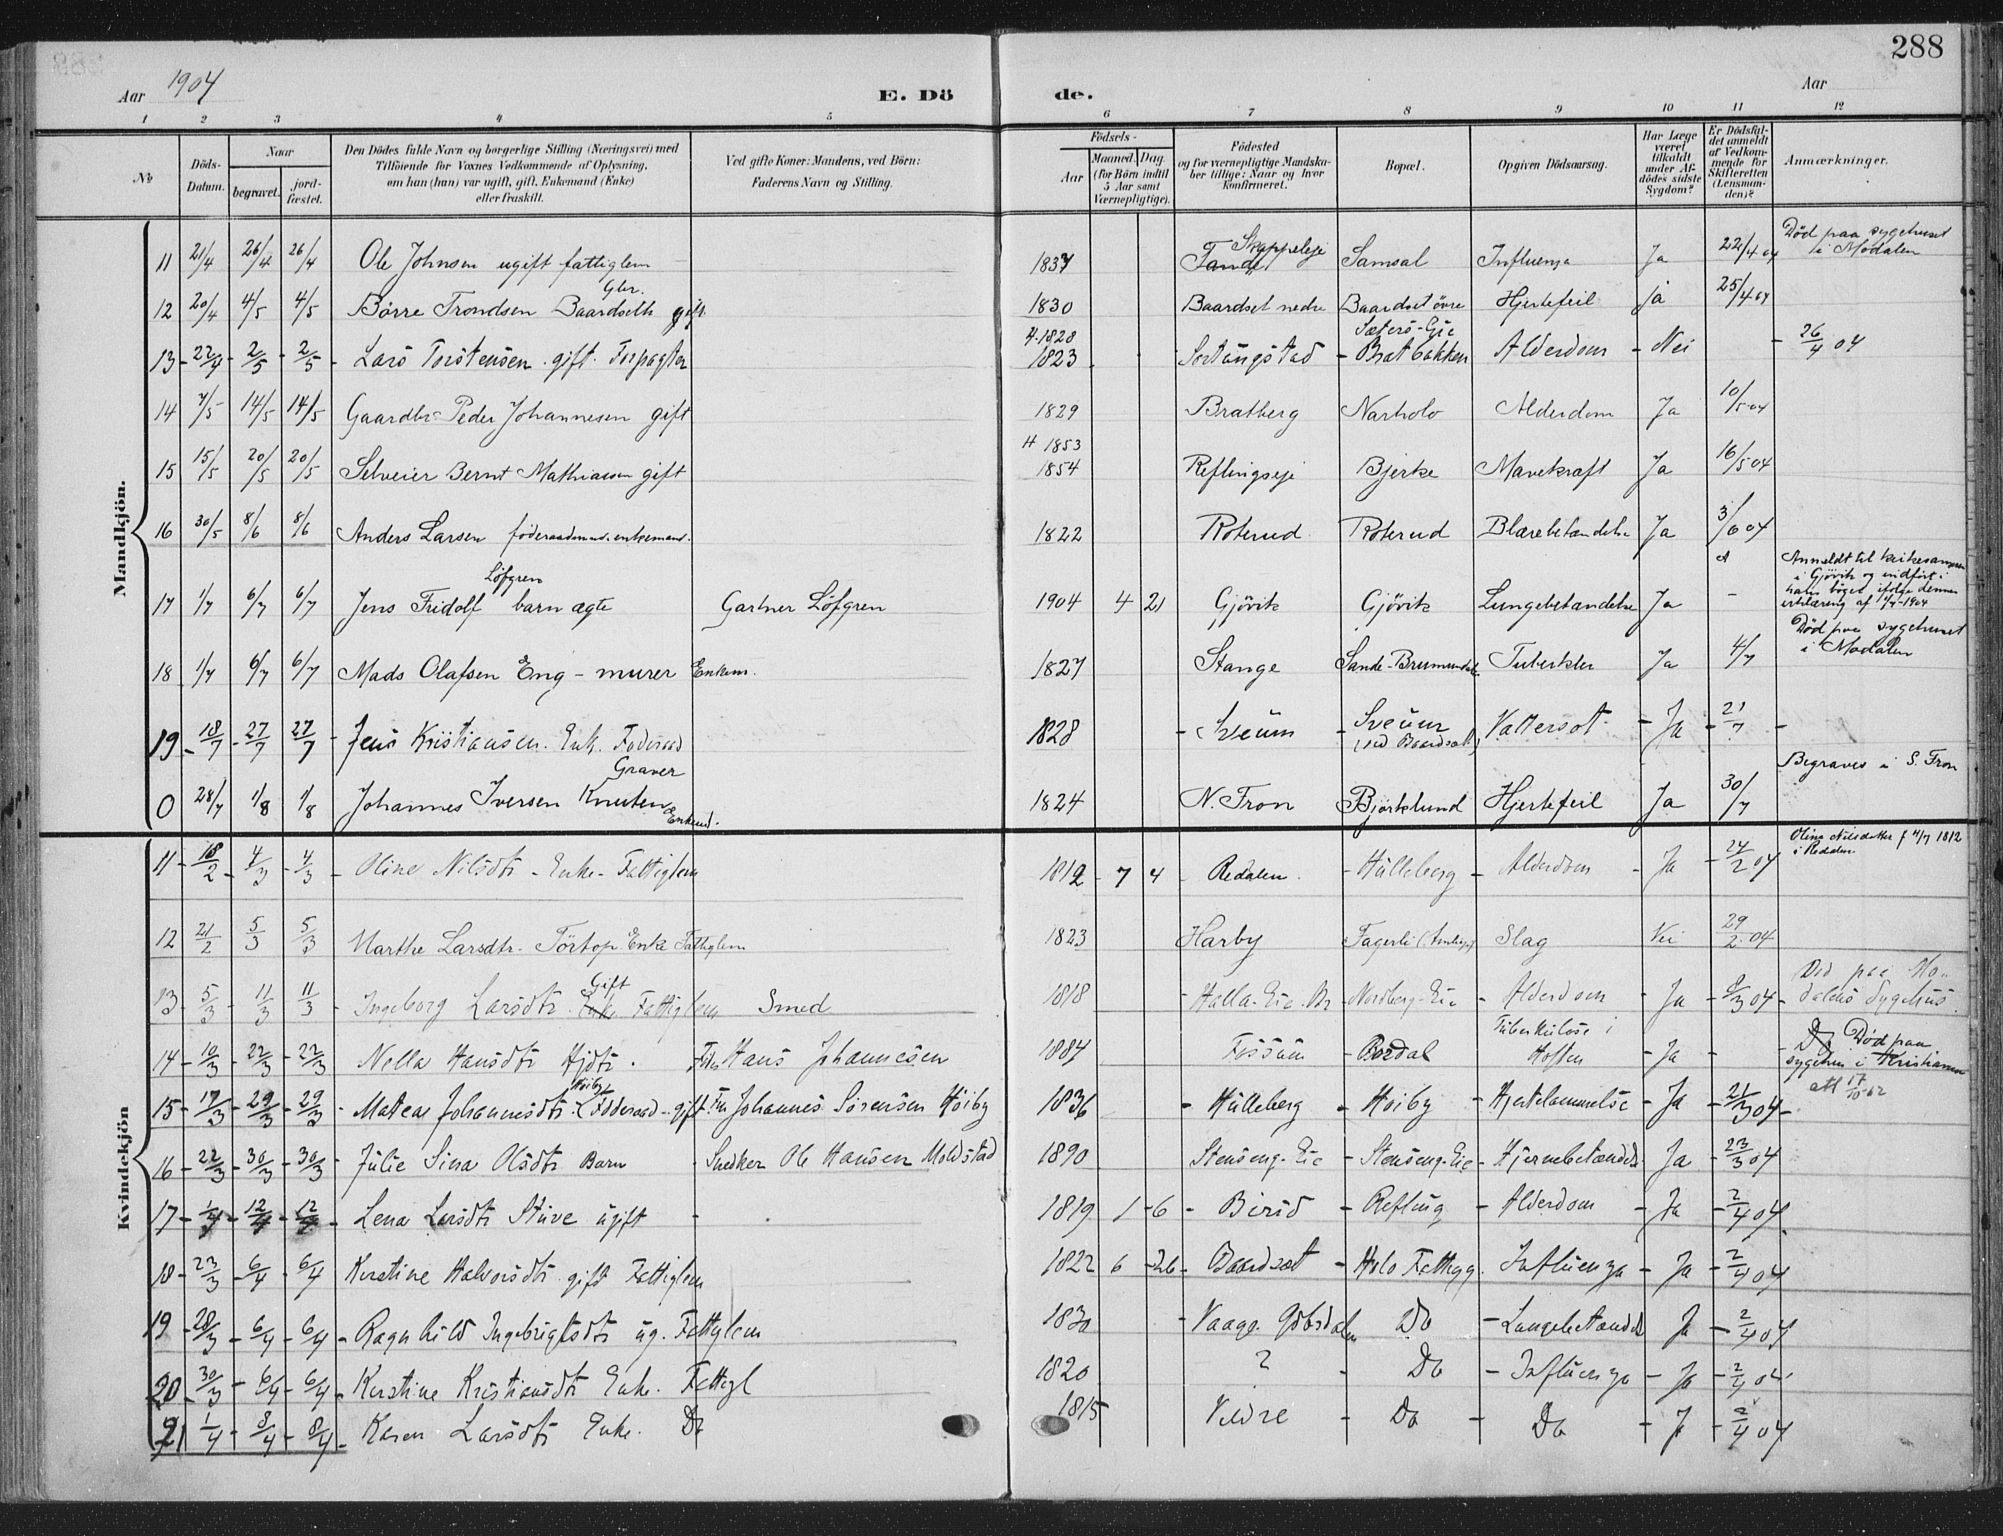 288
Aar 1904
E. Döde.
Aar
1 2 3 4 5 6 7 8 9 10 11 12
No
Döds-Datum.
Naar
begravet.
jordfæstet.
Den Dödes fulde Navn og borgerlige Stilling (Næringsvei) med
Tilföiende for Voxnes Vedkommende af Oplysning,
om han (hun) var ugift, gift, Enkemand (Enke)
eller fraskilt.
Ved gifte Koner: Mandens, ved Börn:
Faderens Navn og Stilling.
Födsels-
Aar
Maaned. Dag.
(for Börn indtil
5 Aar samt
Værnepligtige).
Födested
og for værnepligtige Mandskaber tillige: Naar og hvor
konfirmeret.
Bopæl.
Opgiven Dödsaarsag.
Har Læge
været
tilkaldt
under Afdödes sidste
Sygdom?
Er Dödsfaldet anmeldt
af Vedkommende for
Skifteretten
(Lensmanden)?
Anmærkninger.
Mandkjön.
11 21/4 26/4 26/4 Ole Johnsen ugift fattiglem 1837 Skappeleje Samsal Influenza Ja 22/4 04 Død paa sygehuset i Modalen
12 20/4 4/5 4/5 Børre Trondsen Baardseth Gbr. gift 1830 Baardset nedre Baardset øvre Hjertefeil ja 25/4 04
13 - 22/4 - 2/5 - 2/5 - Lars Torstensen gift Forpagter 4-1820 1823 Sortungstad - Sæters-Eie Bratbakken Alderdom - Nei - 26/4 04
14 7/5 14/5 14/5 Gaardbr. Peder Johannesen gift 1829 Bratberg Narholo Alderdom Ja 10/5 04
15 15/5 20/5 20/5 Selveier Bernt Mathiasen gift 4 1853 1854 Reflingseje Bjerke Mavekræft Ja 16/5 04
16 30/5 8/6 8/6 Anders Larsen föderaadsmd. enkemand. 1822 Roterud Roterud Blærebetændelse Ja 3/6 04
17 1/7 6/7 6/7 Jens Fridolf Löfgren barn ægte Gartner Löfgren 1904 4 21 Gjövik Gjövik Lungebetændelse Ja - Anmeldt til kirkesangeren i Gjövik og indført i hans boger ifølge dennes erklæring af 4/7-1904
18 1/7 6/7 6/7 Mads Olafsen Eng - murer Enkem. 1827 Stange Sande-Brumundal Tuberkler Ja 4/7 Død paa sygehuset i Modalen
19 - 18/7 - 27/7 27/7 - Jens Kristiansen. Enk. Föderaad 1828 - Sveum - Sveum (ved Baardset) Vattersot - Ja - 21/7 -
0 28/7 1/8 1/8 Johannes Iversen Knuten Graver Enkemd. 1824 N. Fron Björklund Hjertefeil Ja 30/7 Begraves i S. Fron
Kvindekjön
11 - 18/2 - 4/3 - 4/3 - Oline Nilsdtr - Enke - Fattiglem 1812 - 7 4 - Redalen. - Hulleberg - Alderdom - Ja - 24/2 04 Oline Nilsdatter f 4/7 1812 i Redalen
12 21/2 5/3 5/3 Marthe Larsdtr. Törtop Enke Fattiglem 1823 Harby Fagerli Slag Nei 29/2 04
13 - 5/3 - 11/3 11/3 - Ingeborg Larsdtr. Enke Gift Fattiglem Smed 1818 - Halla-Eie Br - Nordberg-Eie - Alderdom - Ja - 8/3 04 - Död paa Modalens Sygehus.
14 - 10/3 - 22/3 - 22/3 - Nella Hansdtr Hjdtr. Hans Johannesen 1884 Fossum - Bordal Tuberkulose i Hoften - Ja - - Do Død paa sygehus i Kristiania
15 - 17/3 - 29/3 - 29/3 - Mateas Johannesdtr. Höiby (Föderaad - gift Johannes Sörensen Höiby 1836 - Hulleberg - Höiby - Hjertelammelse - Ja - 21/3 04 - att 17/10-62
16 - 22/3 - 30/3 - 30/3 - Julie Sina Olsdtr Barn - Snedker Ole Hansen Moldstad 1890 Stenseng-Eie - Stenseng-Eie - Hjernebetændelse Ja - 23/3 04
17 - 1/4 - 12/4 - 12/4 - Lena Larsdtr Stuve ugift - 1819 1 - 6 - Birid - Refling - Alderdom - Ja - 2/4 04.
18 - 23/3 - 6/4 - 6/4 Kerstine Halvorsdtr. gift Fattiglem 1822 6 - 26 - Baardset - Holo Fattigg. - Influenza - Ja - 2/4 04
19 - 28/3 - 6/4 - 6/4 - Ragnhild Ingebrigtsdtr ug. Fattiglem 1830 - Vaage Gdbrdalen Do - Lungebetændelse Ja - 2/4 04
20 - 30/3 - 6/4 - 6/4 - Kerstine Kristiansdtr Enke. Fattigl 1820 ? - Do - Influenza - Ja - 2/4 04
21 - 1/4 - 8/4 - 8/4 - Karen Larsdtr Enke. Do 1815 Veldre - Do - Do - J - 2/4 04